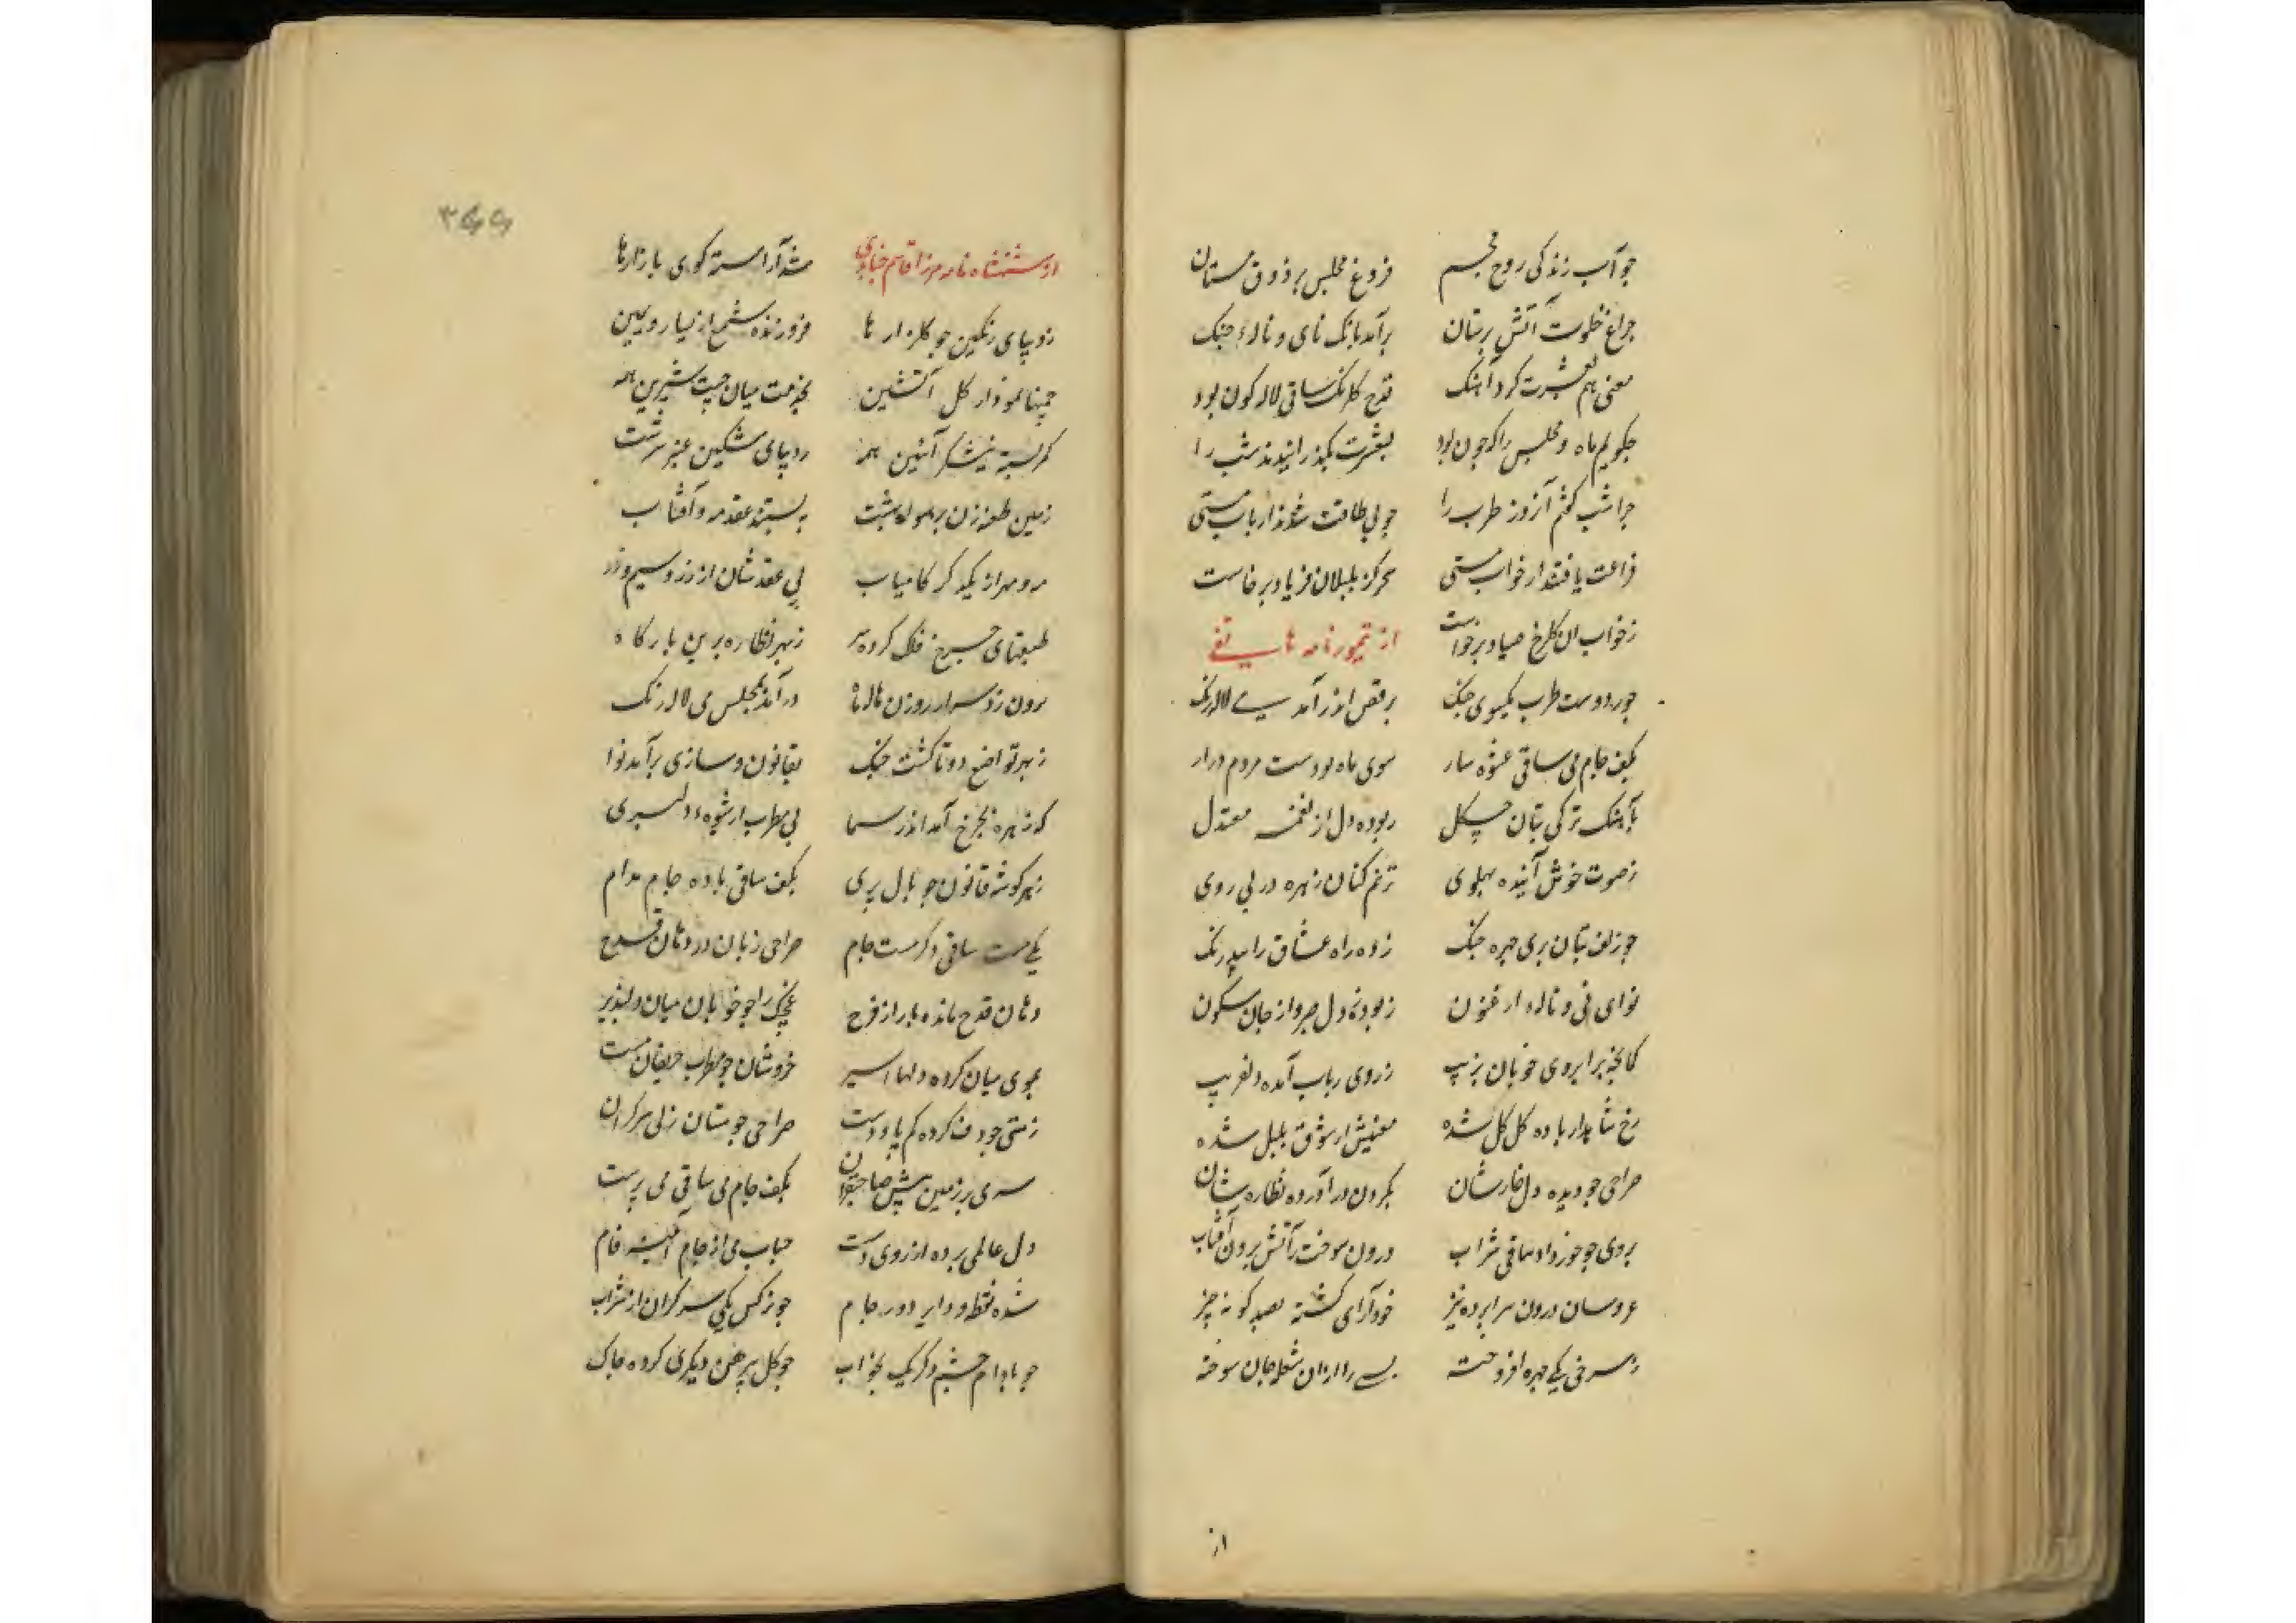 چو آب زندگی روح مجسم فروغ مجلس بر ذوق مستان
چراغ خلوت آتش پرستان برآمد بانک نای و ناله چنک
مغنی هم بعشرت کرد آهنک قدح کلرنک ساقی لاله کون بود
چکویم ماه و مجلس را که چون بود بعشرت بکذرانیدند شب را
چرا شب کفتم آن روز طرب را چو بی طاقت شدند ارباب مستی
فراغت یافتند از خواب مستی سحر کز بلبلان فریاد برخاست
زخواب ان کلرخ صیاد برخواست
از تیمور نامه هاتفی
چو زد دست مطرب بکیسوی چنک برقص اندر آمد می لاله رنک
بکف جام می ساقی عشوه ساز سوی ماه بود دست مردم دراز
بآهنک ترکی بتان چکل ربوده دل از نغمه معتدل
ز صوت خوش آینده پهلوی ترنم کنان زهره در پی روی
چو زلف بتان پری چهره چنک زده راه عشاق را بیدرنک
نوای نی و ناله ارغنون ربوده ز دل صبر و از جان سکون
کمانچه بر ابروی خوبان بزیب ز روی رباب آمده دلفریب
رخ شاهد از باده کل کل شده مغنیش از شوق بلبل شده
صراحی چو دیده دل خارشان بکردن درآورده نظاره شان
بروی چو خور داد ساقی شراب درون سوخت ز آتش برون آفتاب
عروسان درون سراپرده نیز خودآرای کشته بصد کونه چیز
ز سرخی یکی چهره افروخته بسی را از ان شعله جان سوخته
از
از شهنشاه نامه میرزا قاسم جنابدی شد آراسته کوی بازارها
ز دیبای رنکین چو کلزار ها فروزنده شمع از یسار و یمین
چمنها نمودار کل آتشین بخدمت میان چست شیرین همه
کمر بسته نیشکر آئین همه ز دیبای مشکین عنبر سرشت
زمین طعنه زن بر هوای بهشت ببستند عقد مه و آفتاب
مه و مهر از یکدکر کامیاب پی عقدشان از زر و سیم و در
طبقهای چرخ فلک کرده پر ز بهر نظاره برین بارکاه
برون زد سر از روزن هاله ماه درآمد بمجلس می لاله رنک
ز بهر تواضع دوتا کشت چنک بقانون و سازی برآمد نوا
که زهره بچرخ آمد اندر سما پی مطرب از شیوه دلبری
ز هر کوشه قانون چو بال پری بکف ساقی باده جام مدام
یکی مست ساقی دکر مست جام صراحی زبان در دهان قدح
دهان قدح مانده باز از فرح غچک را چو خوبان میان دلپذیر
بموی میان کرده دلها اسیر خروشان چو مطرب حریفان مست
ز مستی چو دف کرده کم پا و دست صراحی چو مستان ز می سرکران
سری بر زمین پیش صاحبقران بکف جام می ساقی می پرست
دل عالمی برده از روی دست حباب می از جام آئینه فام
شده نقطه و دایر دور جام چو نرکس یکی سرکران از شراب
چو بادام چشم دکر یک بخواب چو کل پیرهن دیکری کرده چاک